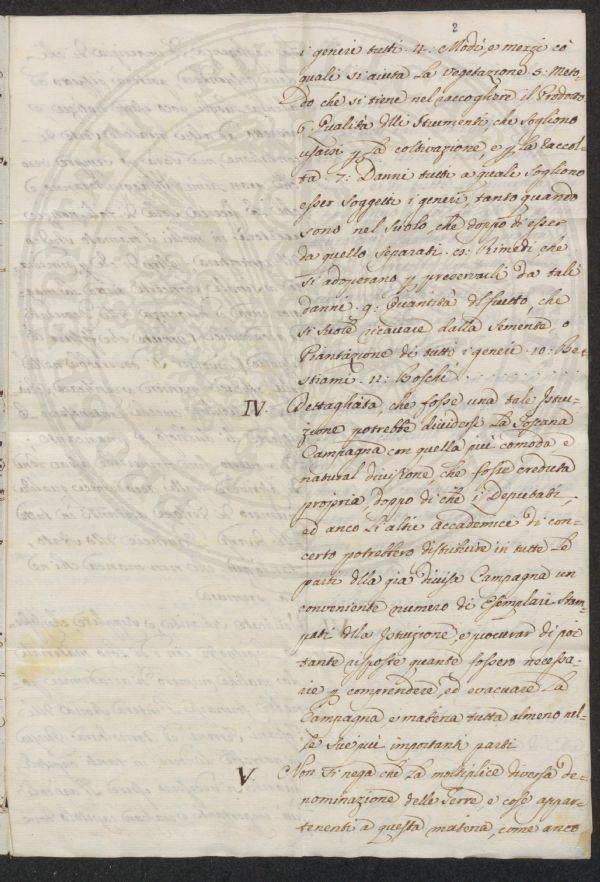 2
i generi tutti. 4: Modi e mezzi co
quali si aiuta la vegetazione. 5: Meto-
do che si tiene nel raccogliere il Prodotto
6: Qualità delli Strumenti che sogliono
usarsi p la coltivazione, e p la Raccol-
ta. 7: Danni tutti a quali sogliono
esser soggetti i generi, tanto quando
sono nel suolo, che doppo di esser
da quello separati. 8: Rimedi che
si adoperano p preservarli da tali
danni. 9: Quantità di frutto, che
si suole ricavare dalla Semente, o
Piantazione di tutti i generi. 10: Be-
stiami. 11: Boschi.
IV Dettagliata che fosse una tale Istru-
zione potrebbe dividersi la Toscana
Campagna con quella più comoda e
natural divisione, che fosse creduta
propria, doppo di che i Deputati,
ed anco li altri Accademici di con-
certo potrebbero distribuire in tutte le
parti della già divisa Campagna un
conveniente numero di Esemplari Stam-
pati della Istruzione, e procurar di poi
tante risposte quante fossero necessa-
rie p comprendere, ed evacuare la
Campagna e materia tutta almeno nel-
le sue più importanti parti.
V Non si nega che la moltiplice diversa de-
nominazione delle Terre, e cose appar-
tenenti a questa materia, come anco